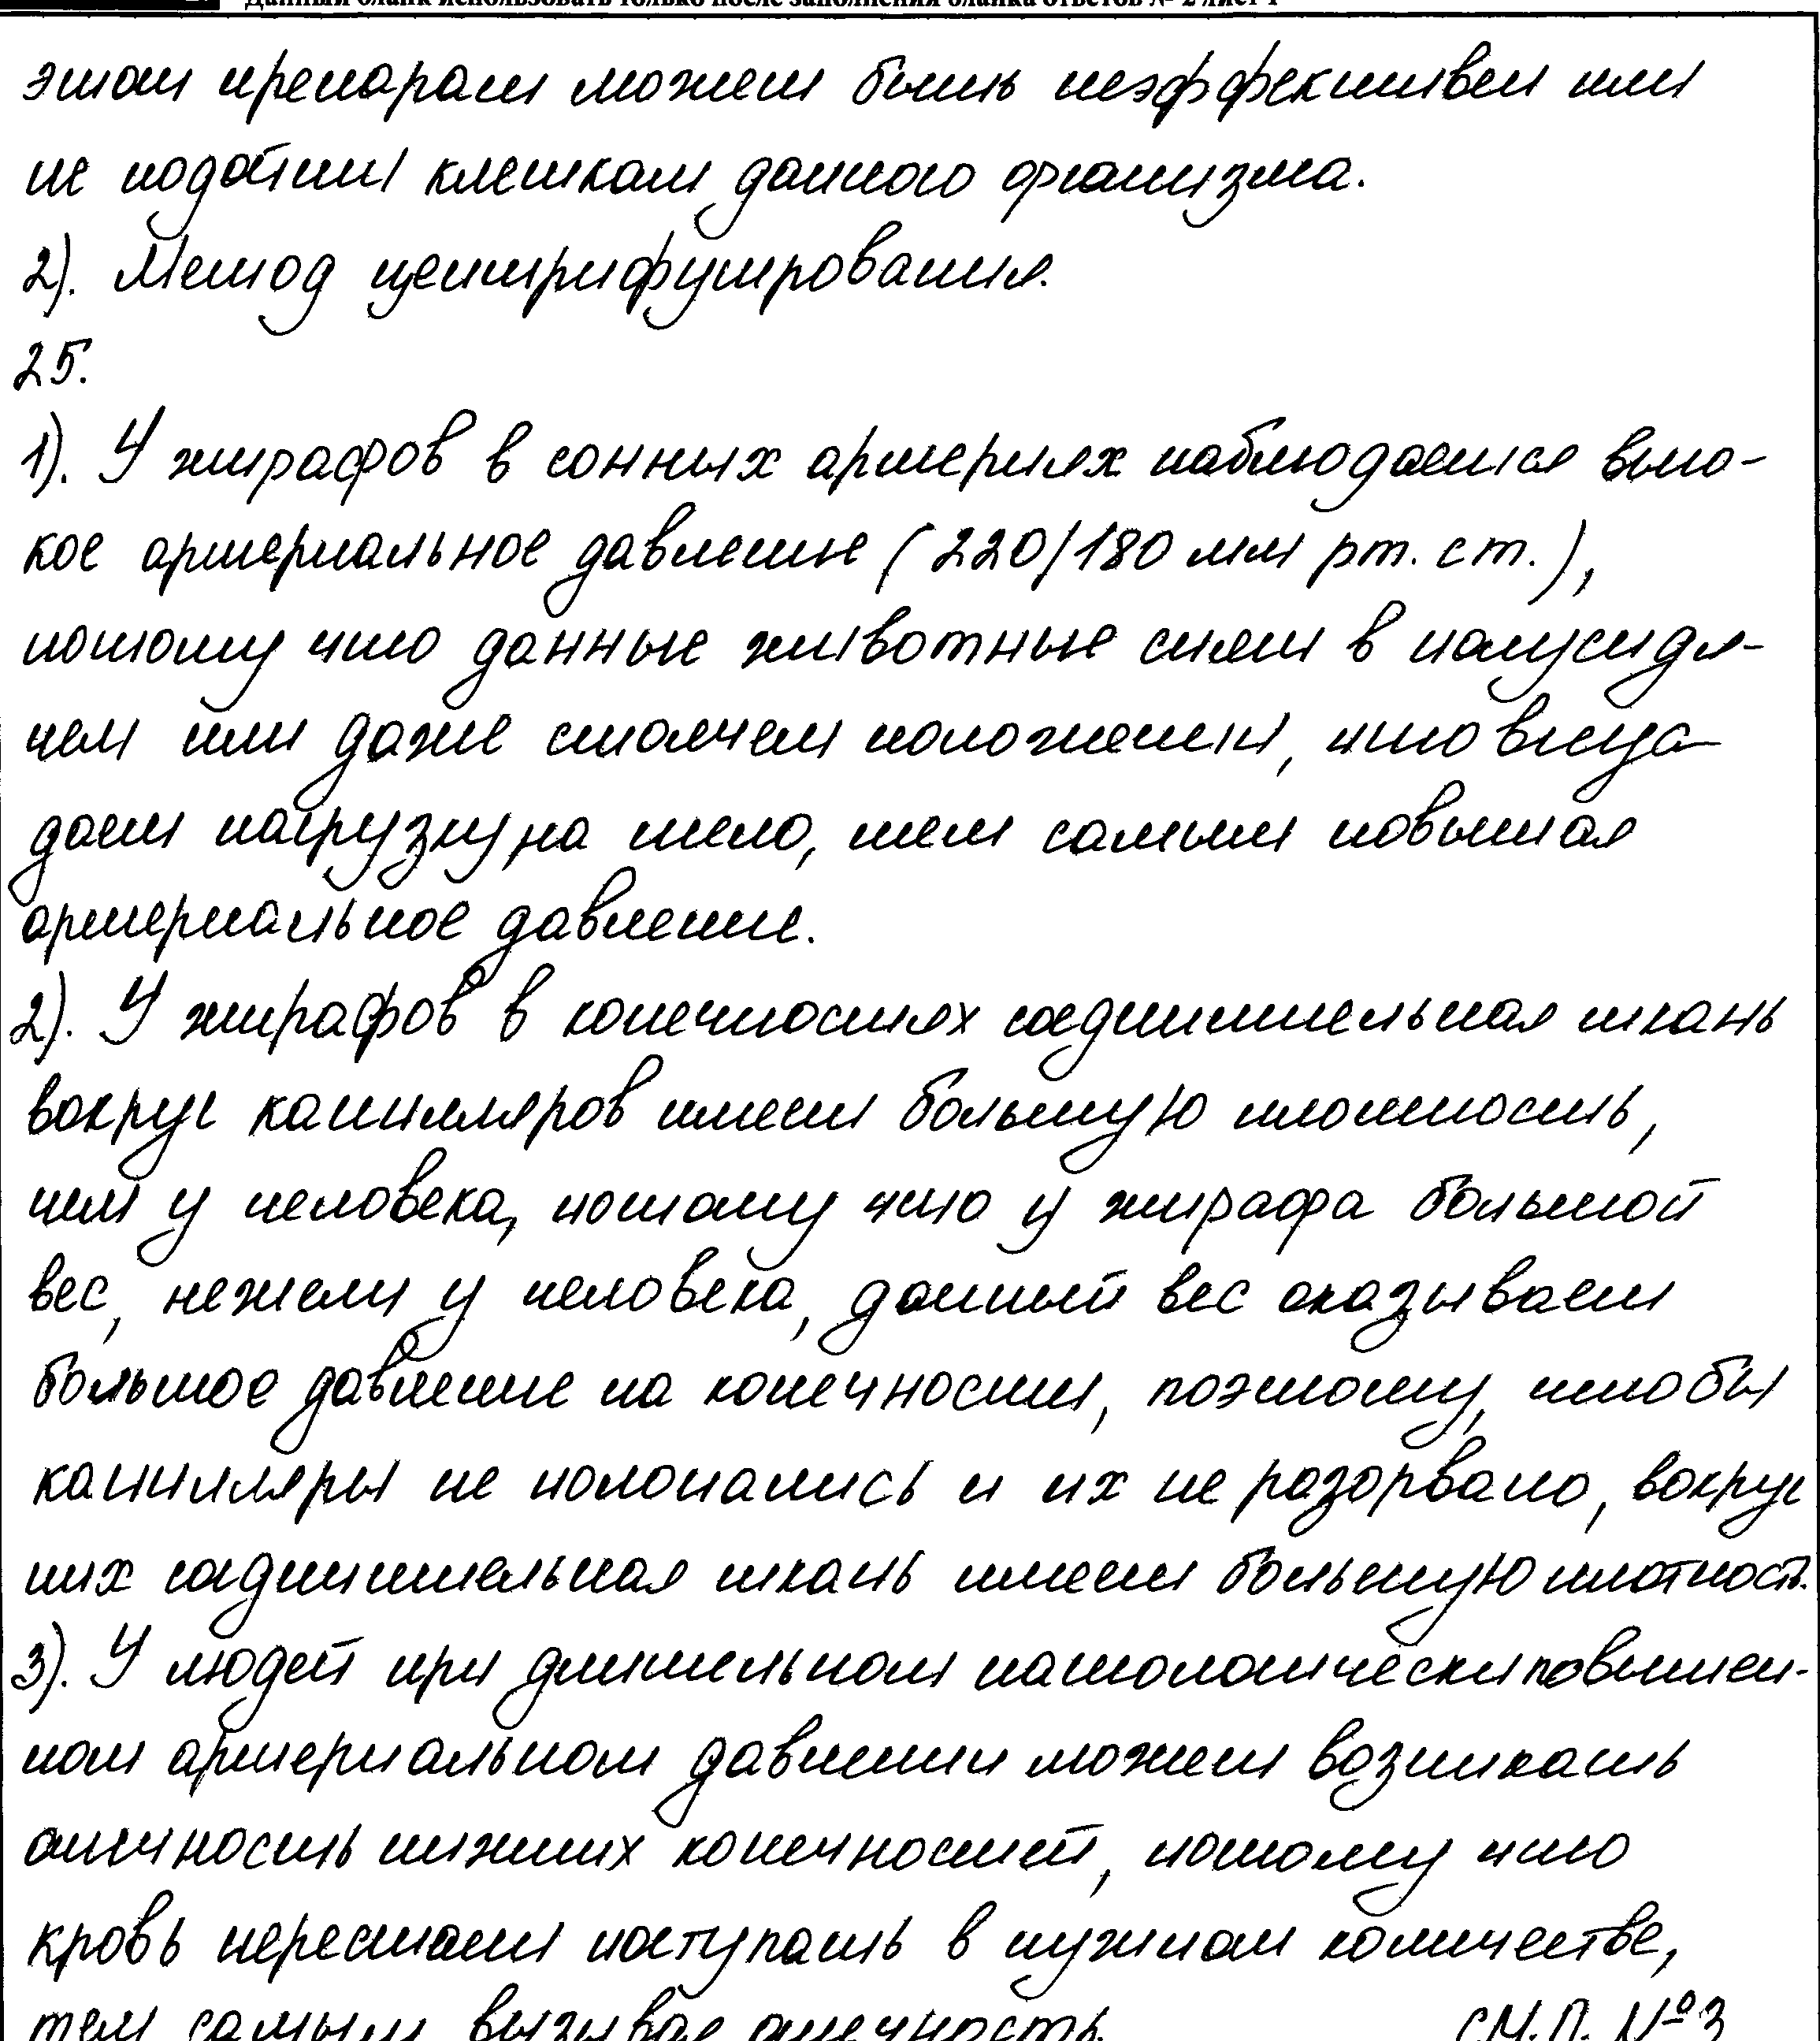 Данный бланк использовать только после заполнения бланка ответов № 2 лист 1
этот препарат может быть неэффективен или
не подойти клеткам данного организма.
2). Метод центрифугирования.
25.
1). У жирафов в сонных артериях наблюдается высо-
кое артериальное давление (220/180 мм рт. ст.),
потому что данные животные спят в полусидя-
чем или даже стоячем положении, что
дает нагрузку на тело, тем самым повышая
артериальное давление.
2). У жирафов в конечностях соединительная ткань
вокруг капилляров имеет большую плотность,
чем у человека, потому что у жирафа большой
вес, нежели у человека, данный вес оказывает
большое давление на конечности, поэтому, чтобы
капилляры не полопались и их не разорвало, вокруг
них соединительная ткань имеет большую плотность.
3). У людей при длительном патологически повышен-
ном артериальном давлении может возникать
отечность нижних конечностей, потому что
кровь перестает поступать в нужном количестве,
тем самым вызывая отечность.
см.п. №3